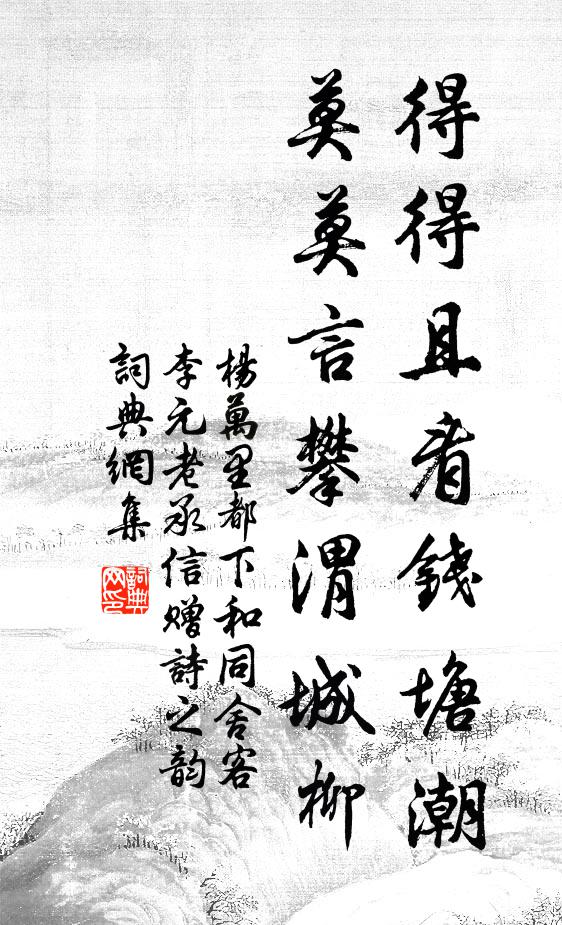 得得且看錢塘潮
莫莫言攀渭城柳
楊萬里都下和同舍客
李元老承信贈詩之韵
詞典網集
詞典网印